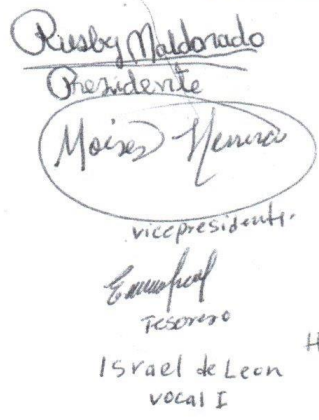 Rusby Maldonado
Presidente
Moises Herrera
vicepresidente.
Tesorero
Israel de Leon
vocal I
H